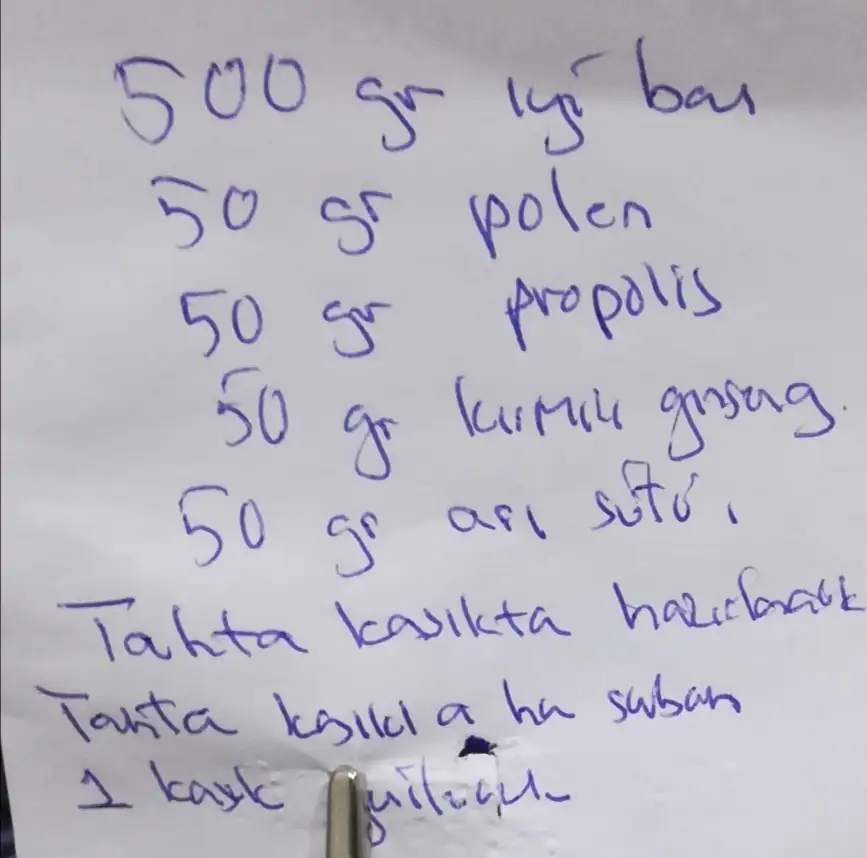 500 gr iyi bal
50 gr polen
50 gr propolis
50 gr kırmızı ginseng
50 gr arı sütü
Tahta kaşıkta hazırlanacak
Tahta kaşıkla her sabah
1 kaşık yenilecek